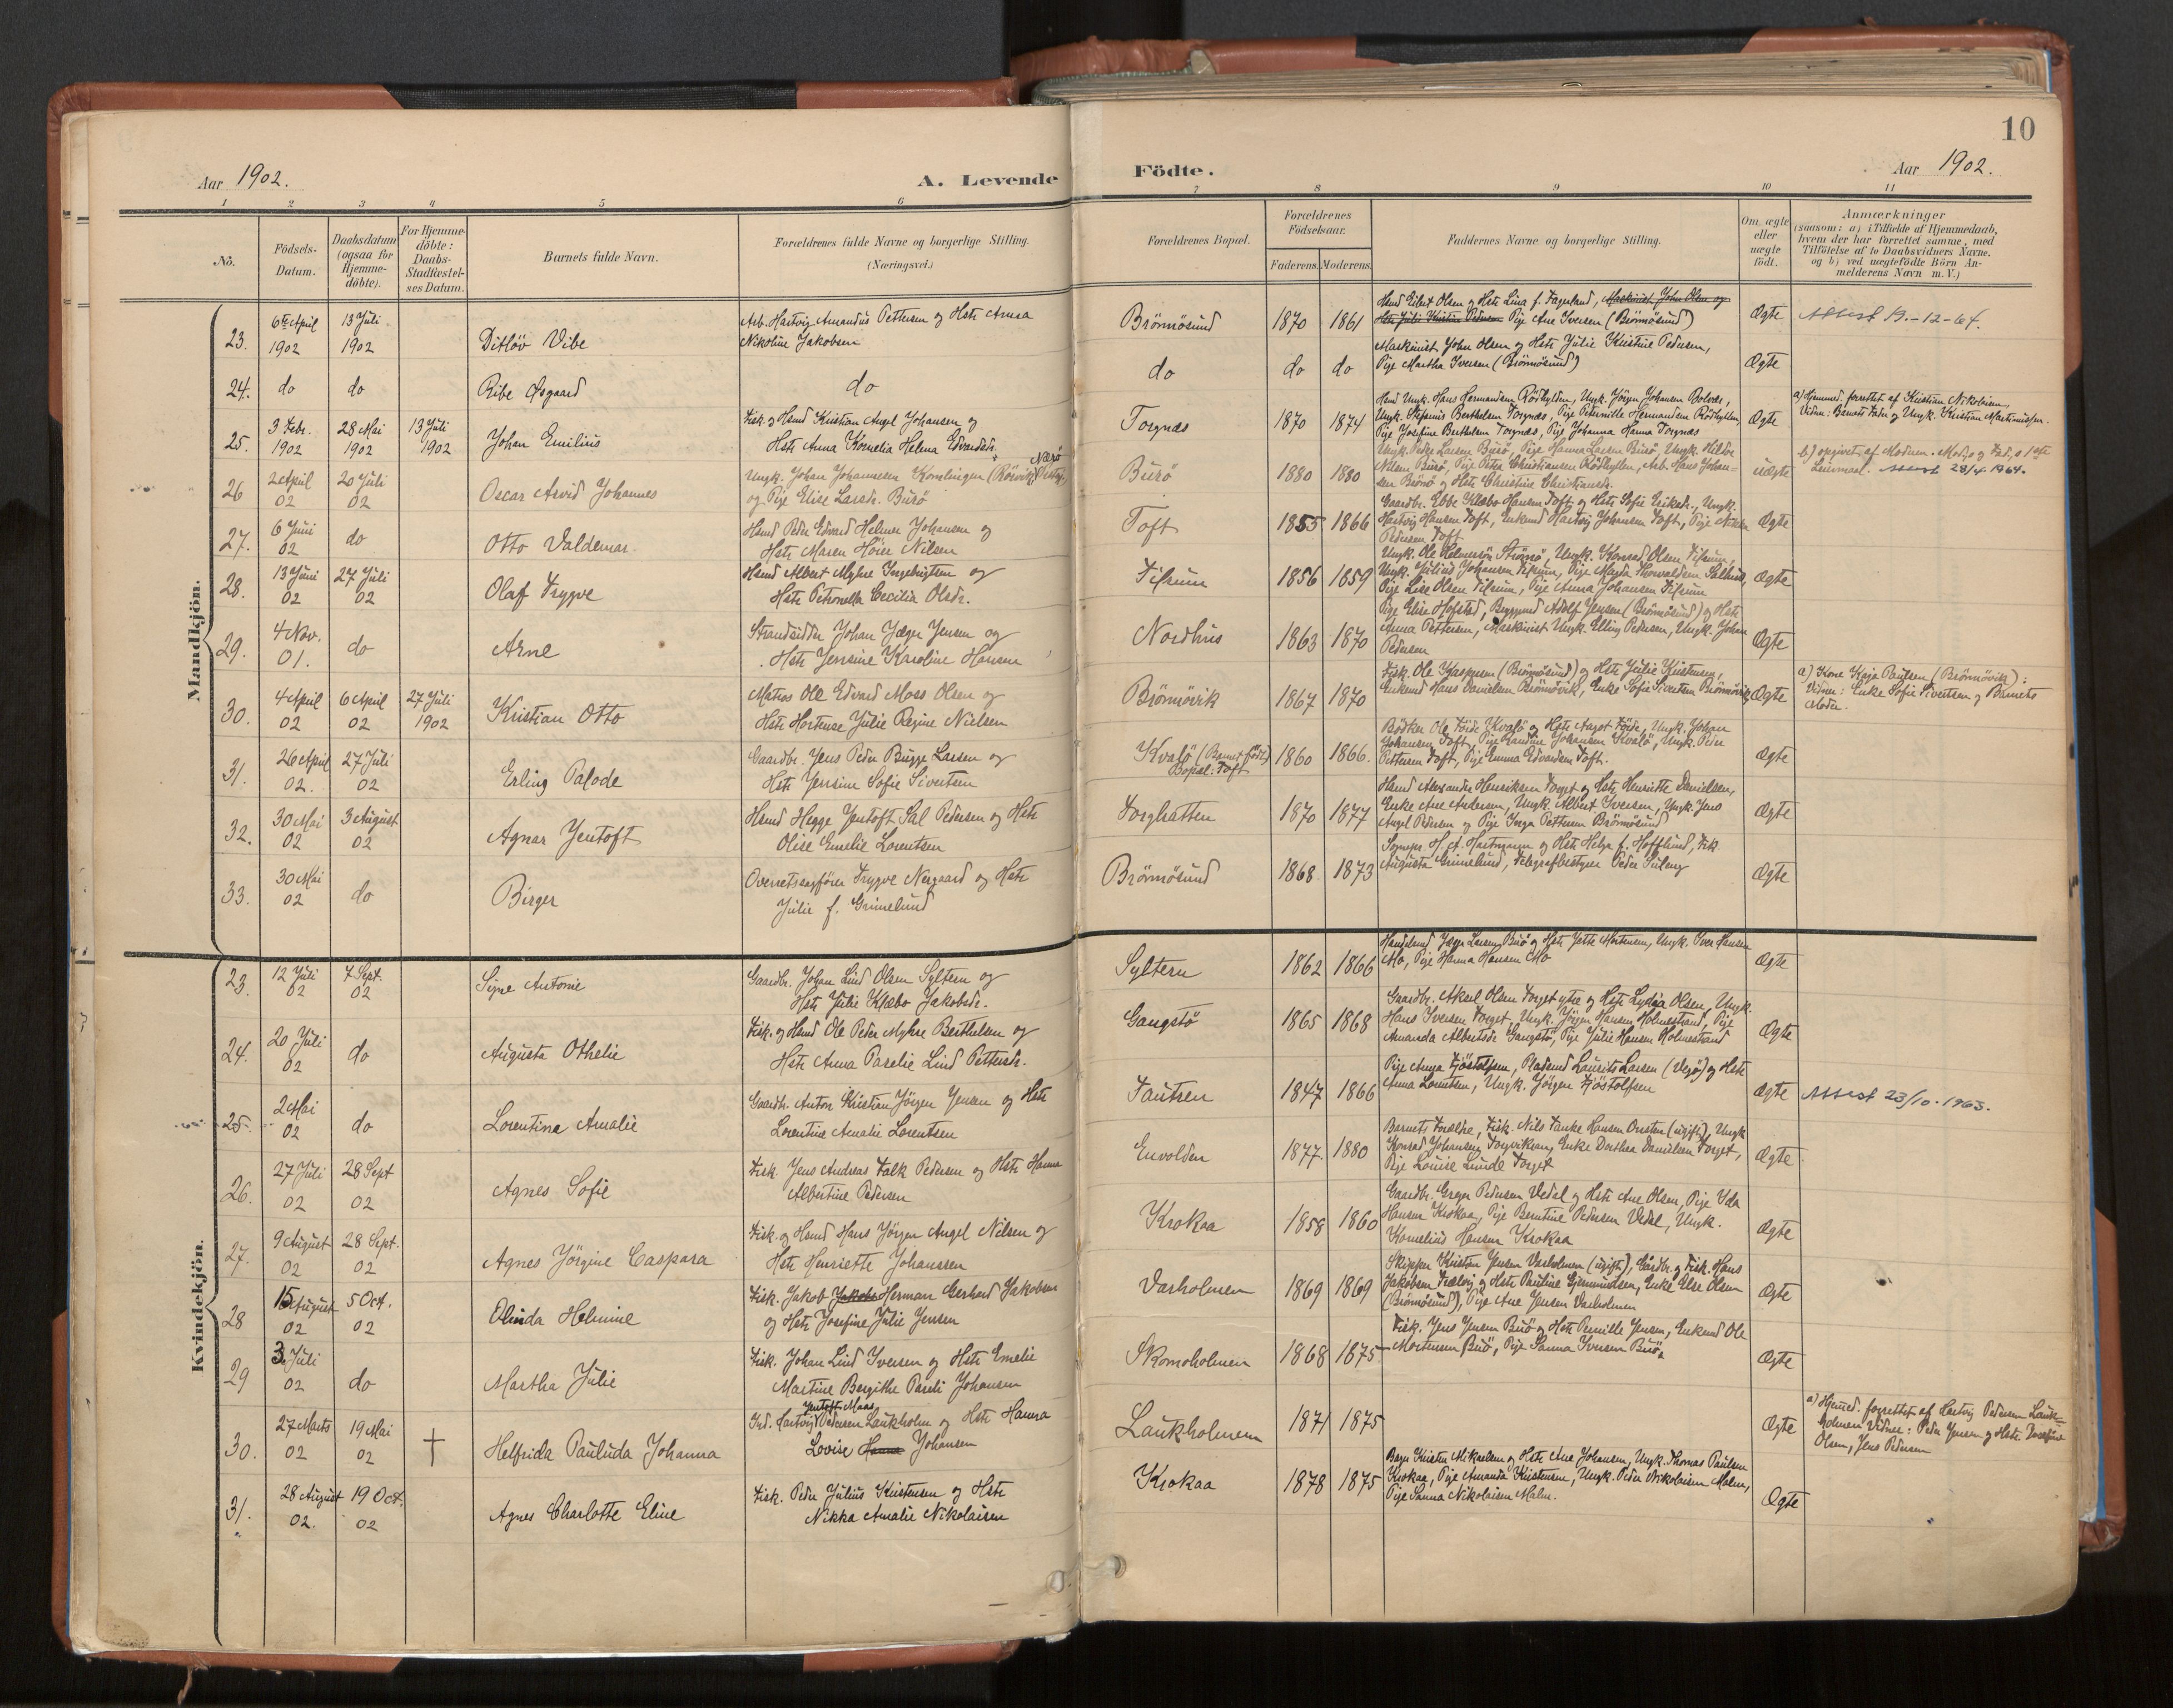 10
Aar 1902.
A. Levende Födte.
Aar 1902.
1 2 3 4 5 6 7 8 9 10 11
No.
Födsels-
Datum.
Daabsdatum
(ogsaa for
Hjemme-
döbte).
For Hjemme-
döbte:
Daabs-
Stadfæstel-
ses Datum.
Barnets fulde Navn.
Forældrenes fulde Navne og borgerlige Stilling.
(Næringsvei.)
Forældrenes Bopæl.
Forældrenes
Födselsaar.
Faderens. Moderens.
Faddernes Navne og borgerlige Stilling.
Om ægte
eller
uægte
födt.
Anmærkninger
(saasom: a) i Tilfælde af Hjemmedaab,
hvem der har forrettet samme, med
Tilföielse af to Daabsvidners Navne.
og b) ved uægtefödte Börn An-
melderens Navn m. V.)
Mandkjön.
23. 6te April 1902 13 Juli 1902 Ditlöv Vibe
Arb. Hartvig Amandus Pettersen og Hstr Anna
Nikoline Jakobsen
Brönnösund 1870 1861
Hsmd Eilert Olsen og Hstr Lina f. Fagerland, Maskinist John Olsen og
Hstr Juli Kristine Pedersen Pige Ane Iversen (Brönnösund)
Ægte
Attest 19.-12-64.
24. do do Ribe Øsgaard do
do do do
Maskinist John Olsen og Hstr Julie Kristine Pedersen,
Pige Martha Iversen (Brönnösund)
Ægte
25. 3 Febr. 1902 28 Mai 1902 13 Juli 1902 Johan Emilius
Fisk. og Hsmd Kristian Angel Johansen og
Hstr Anna Kornelia Helena Edvardsdr.
Torgnæs 1870 1874
Ungk. Hans Hermansen Rödhyllen, Ungk. Jörgen Johansen Bolvær,
Ungk. Stefanus Berthelsen Torgnæs, Pige Peternille Hermansen Rödhyllen,
Pige Josefine Berthelsen Torgnæs, Pige Johanna Hanna Torgnæs
Ægte
a) Hjemmed. forrettet af Kristian Nikolaisen
Vidne: Barnets Fader og Ungk. Kristian Martinussen.
26 2 April 02 20 Juli 02 Oscar Arvid Johannes
Ungk. Johan Johannesen Komlingen (Rörvik, Nærö
og Pige Elise Larsdr. Burö
Burö 1880 1880
Ungk. Peder Larsen Burö, Pige Hanna Larsen Burö, Ungk. Hilbe
Nilsen Burö, Pige Petra Christiansen Rödhyllen, Arb. Hans Johan-
sen Brönö og Hstr Christine Christiansdr.
uægte
b) opgivet af Moderen. Mod.s og Fad.s 1ste
Leiermaal. Attest 28/4 1964.
27. 6 Juni 02 do Otto Valdemar
Hsmd Peder Edvard Helmer Johansen og
Hstr Maren Höier Nilsen
Toft 1855 1866
Gaardbr. Ebbe Klæbo Hansen Toft og Hstr Sofie Eriksdr., Ungk.
Hartvig Hansen Toft, Enkemd Hartvig Johansen Toft, Pige Nikka
Pedersen Toft
Ægte
28. 13 Juni 02 27 Juli 02 Olaf Trygve
Hsmd Albert Myhre Ingebrigtsen og
Hstr Petronella Cecilia Olsdr.
Tilrum 1856 1859
Ungk. Ole Helmersön Strömö, Ungk. Konrad Olsen Tilrum,
Ungk. Julius Johansen Tilrum, Pige Magda Thorvaldsen Salhus,
Pige Lise Olsen Tilrum, Pige Anna Johansen Tilrum
Ægte
29. 4 Nov. 01. do Arne
Strandsidder Johan Jæger Jensen og
Hstr Jensine Karoline Hansen
Nordhus 1863 1870
Pige Elise Hofstad, Byggmd Adolf Jensen (Brönnösund) og Hstr
Anna Pettersen, Maskinist Ungk. Elling Pedersen, Ungk. Johan
Pedersen
Ægte
30. 4 April 02 6 April 02 27 Juli 1902 Kristian Otto
Matros Ole Edvard Moss Olsen og
Hstr Hortense Julie Regine Nielsen
Brönnövik 1867 1870
Fisk. Ole Kaspersen (Brönnösund) og Hstr Julie Kristensen,
Enkemd Hans Danielsen Brönnövik, Enke Sofie Sivertsen Brönnövik
Ægte
a) Kone Kaja Paulsen (Brönnövik):
Vidner: Enke Sofie Sivertsen og Barnets
Moder.
31. 26 April 02. 27 Juli 02 Erling Palode
Gaardbr. Jens Peder Bugge Larsen og
Hstr Jensine Sofie Sivertsen
Kvalö (Barnet födt)
Bopæl: Toft
1860 1866.
Bödker Ole Föide Kvalö og Hstr Aagot Föide, Ungk. Johan
Johansen Toft, Pige Randine Johansen Kvalö, Ungk. Peder
Pettersen Toft, Pige Emma Edvardsen Toft.
Ægte
32. 30 Mai 02 3 August 02 Agnar Jentoft
Hsmd Hegge Jentoft Sal Pedersen og Hstr
Olise Emelie Lorentsen
Torghatten 1870 1877
Hsmd Alexander Henriksen Torget og Hstr Henriette Danielsen,
Enke Ane Andersen, Ungk. Albert Iversen, Ungk. Jens
Angel Pedersen og Pige Inga Pettersen Brönnösund
Ægte
33. 30 Mai 02 do Birger
Overretssagförer Trygve Nergaard og Hstr
Julie f. Grimelund
Brönnösund 1868 1873
Sognepr. H. A. Hartmann og Hstr Helga f. Hofflund, Frk.
Augusta Grimelund, Telegrafbestyrer Peder
Ægte
Kvindekjön.
23. 12 Juli 02 7 Sept. 02 Signe Antonie
Gaardbr. Johan Lind Olsen Syltern og
Hstr Julie Klæbo Jakobsdr.
Syltern 1862 1866
Handelsmd Jæger Larsen Burö og Hstr Jette Mortensen, Ungk. Iver Hansen
Mo, Pige Hanna Hansen Mo
Ægte
24. 20 Juli 02 do Augusta Othelie
Fisk. og Hsmd Ole Peder Myhre Berthelsen og
Hstr Anna Paselie Lind Pettersdr.
Gangstö 1865 1868
Gaardbr. Aksel Olsen Torget ytre og Hstr Lydia Olsen, Ungk.
Hans Iversen Torget, Ungk. Jörgen Hansen Holmestrand, Pige
Amanda Albertsdr Gangstö, Pige Julie Hansen Holmestrand
Ægte
25. 2 Mai 02 do Lorentina Amalie
Gaardbr. Anton Kristian Jörgen Jensen og Hstr
Lorentine Amalie Lorentsen
Tautren 1847 1866
Pige Anna Fjöstolfsen, Pladsmd Laurits Larsen (Vegö) og Hstr
Anna Lorentsen, Ungk. Jörgen Fjöstolfsen
Ægte
Attest 23/10.1963.
26. 27 Juli 02 28 Sept 02 Agnes Sofie
Fisk. Jens Andreas Falk Pedersen og Hstr Hanna
Albertine Pedersen
Envolden 1877 1880
Barnets Forældre, Fisk. Nils Tanke Hansen Onsten (ugift), Ungk.
Konrad Johansen Torgvikean, Enke Dorthea Danielsen Torget,
Pige Louise Lunde Torget
Ægte
27. 9 August 02 28 Sept. 02 Agnes Jörgine Caspara
Fisk. og Hsmd Hans Jörgen Angel Nilsen og
Hstr Henriette Johanssen
Krokaa 1858 1860
Gaardbr. Greger Pedersen Vedal og Hstr Ane Olsen, Pige Ida
Hansen Krokaa, Pige Berntine Pedersen Vedal, Ungk.
Kornelius Hansen Krokaa
Ægte
28 15 August 02 5 Oct. 02 Olinda Helmine
Fisk. Jakob Jakobs Herman Gerhard Jakobsen
og Hstr Josefine Julie Jensen
Varholmen 1869 1869
Skipper Kristian Jensen Varholmen (ugift), Gårdbr. og Fisk. Hans
Jakobsen Trælvig og Hstr Pauline Gjermundsen, Enke Else Olsen
(Brönnösund), Pige Ane Jensen Varholmen
Ægte
29 3. Juli 02 do Martha Julie
Fisk. Johan Lind Iversen og Hstr Emelie
Martine Bergithe Paseli Johansen
Skomoholmen 1868 1875
Fisk. Jens Jensen Burö og Hstr Pernille Jensen, Enkemd Ole
Mortensen Burö, Pige Sanna Iversen Burö.
Ægte
30. 27 Marts 02 19 Mai 02 † Helfrida Pauluda Johanna
Jentoft Maas
Ind. Hartvig Pedersen Laukholm og Hstr Hanna
Lovise Hanna Johansen
Laukholmen 1871 1875
Ægte
a) Hjemmed. forrettet af Hartvig Pedersen Lauk-
holmen Vidner: Peder Jensen og Hstr Josefine
Olsen, Jens Pedersen
31. 28 August 02. 19 Oct. 02 Agnes Charlotte Eline
Fisk. Peder Julius Kristensen og Hstr
Nikka Amalie Nikolaisen
Krokaa 1878 1875
Kristen Mikaelsen og Hstr Ane Johansen, Ungk. Thomas Paulsen
Krokaa, Pige Amanda Kristensen, Ungk. Peder Nikolaisen Malm,
Pige Sanna Nikolaisen Malm.
Ægte